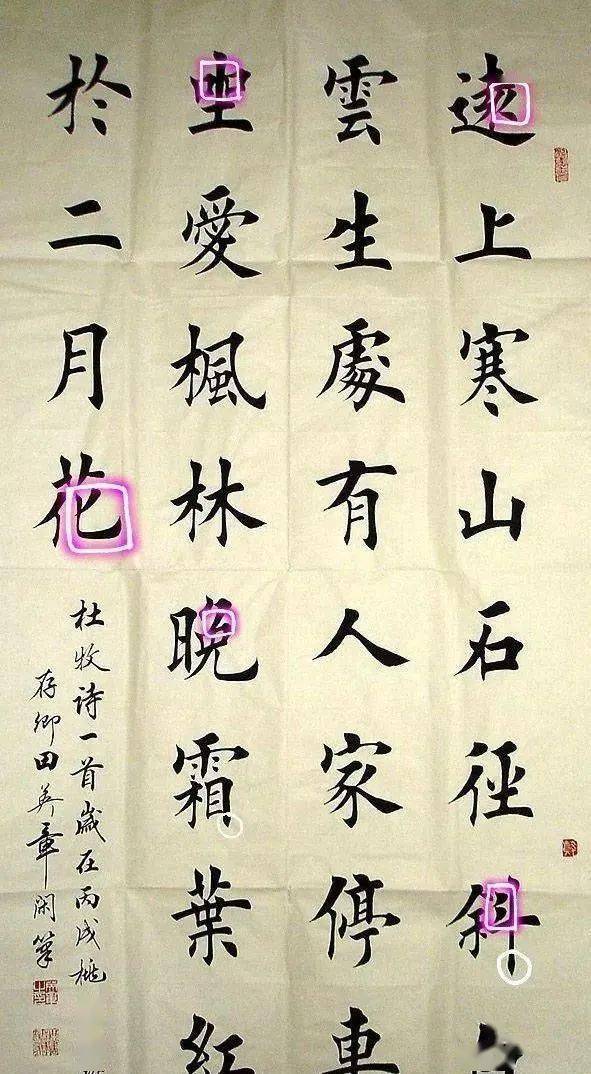 遠上寒山石徑斜
雲生處有人家停車
坐愛楓林晚霜葉紅
於二月花
杜牧诗一首歲在丙戌桃
存卿田英章闲筆